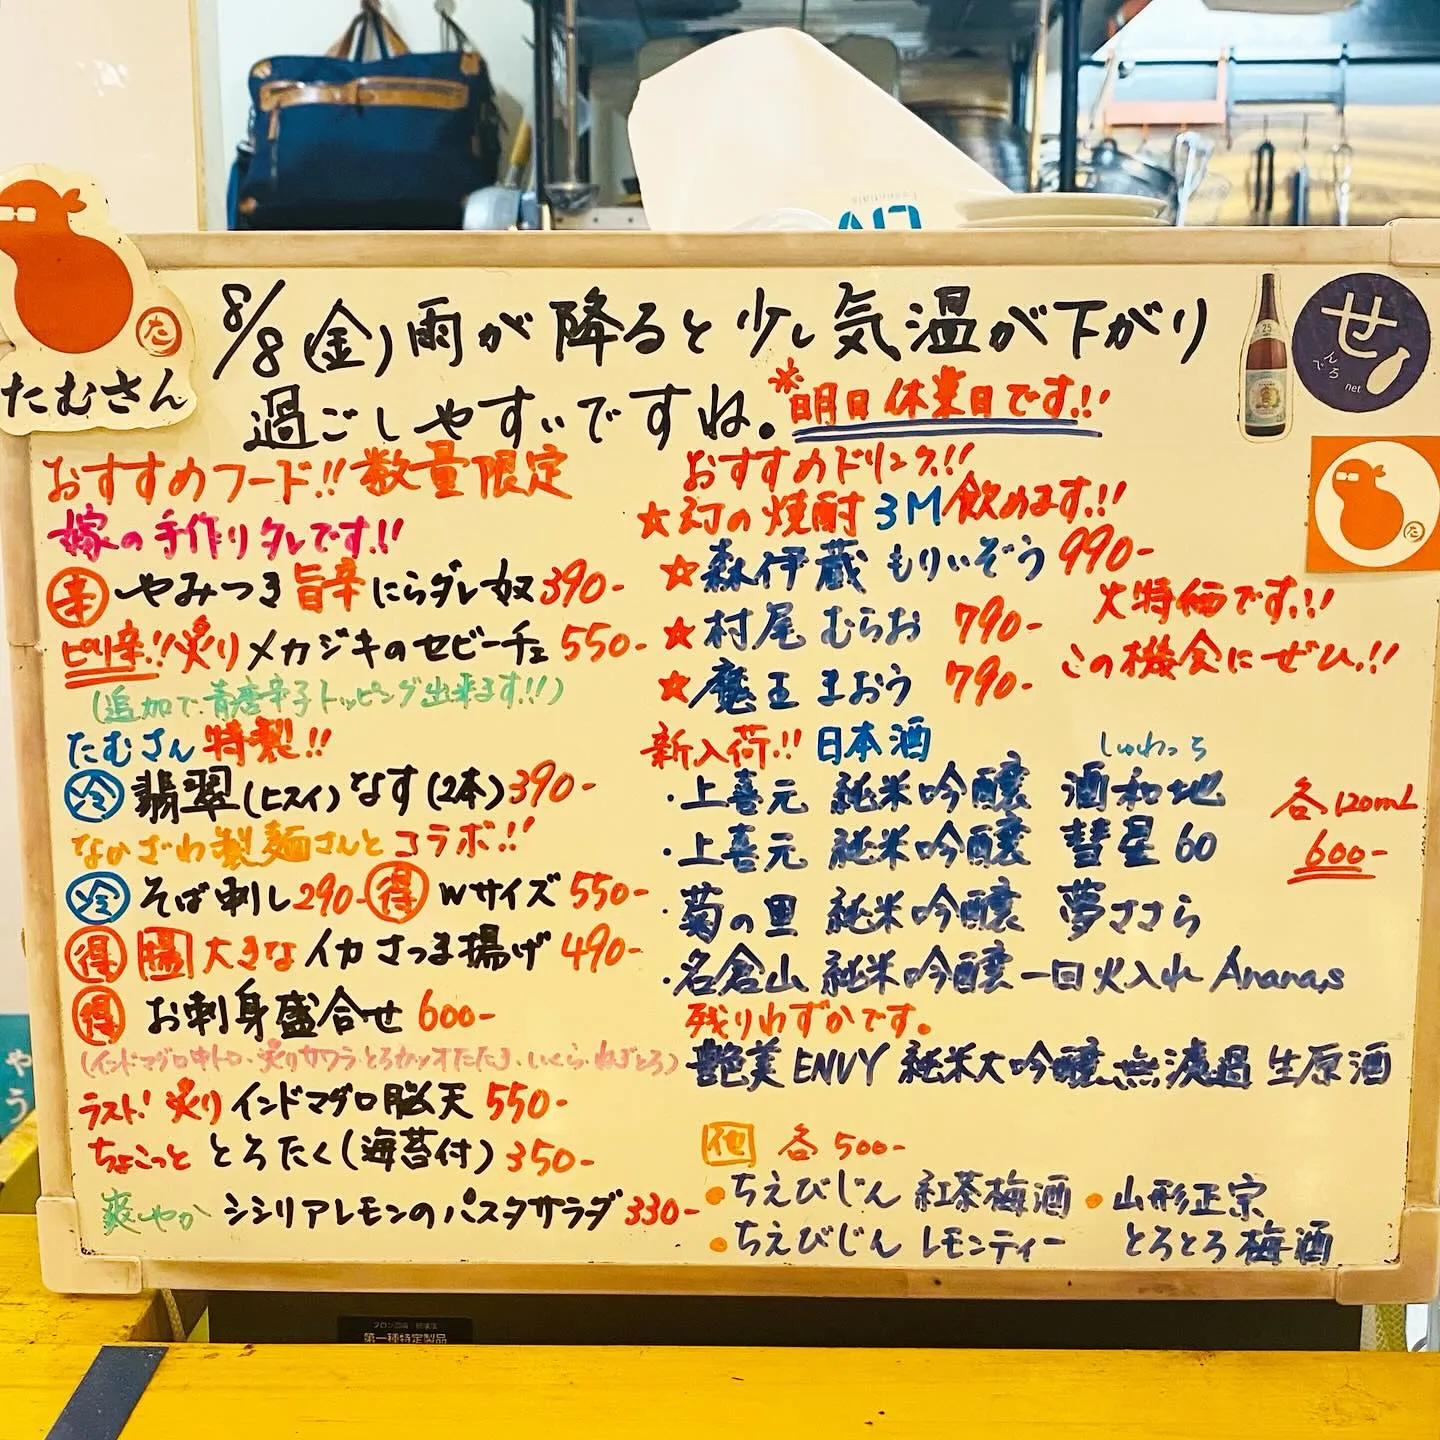 8/8(金)雨が降ると少し気温が下がり
過ごしやすいですね。
※明日休業日です!!
たむさん
た
せ
んべろ
net
25
おすすめのフード!!数量限定
嫁の手作りタレです!!
辛 やみつき旨辛にらダレ奴390-
ピリ辛!!炙りメカジキのセビーチェ550-
(追加で青唐辛子トッピング出来ます!!)
たむさん特製!!
冷 翡翠(ヒスイ)なす(2本)390-
ながざわ製麺さんとコラボ!!
冷 そば刺し290- 得 Wサイズ550-
得 大きなイカさつま揚げ490-
得 お刺身盛合せ600-
(インドマグロ中トロ・炙りサワラ・とろカツオたたき・いくら・ねぎとろ)
ラスト!炙りインドマグロ脳天550-
ちょこっととろたく(海苔付)350-
爽やかシシリアレモンのパスタサラダ330-
おすすめドリンク!!
☆幻の焼酎3M飲めます!!
☆森伊蔵 もりいぞう 990-
☆村尾 むらお 790-
☆魔王 まおう 790-
大特価です!!
この機会にぜひ!!
新入荷!!日本酒
しゅわっち
・上喜元 純米吟醸 酒和地
・上喜元 純米吟醸 彗星60
・菊の里 純米吟醸 夢ささら
・名倉山 純米吟醸一回火入れ Ananas
各120mL
600-
残りわずかです。
艶美ENVY 純米大吟醸無濾過生原酒
他 各500-
●ちえびじん 紅茶梅酒
●ちえびじん レモンティー
●山形正宗
とろとろ梅酒
第一種特定製品
やう